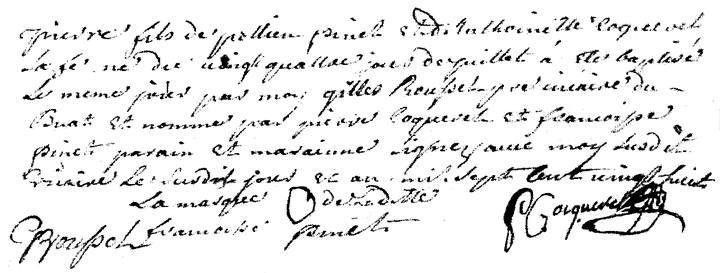 pierre fils de pinet et d'Anthoinette Coquerel
sa fe né du vingt quattre jour de juillet à este baptisé
Le meme jour par moy gilles Roussel pre vicaire du
Buat et nommé par pierre Coquerel et francoise
pinet parain et maraiune signes avec moy susdit
vicaire Le susdit jour et an mil sept cent vingt huict
La marque de laditte
Roussel francoise pinet P Coquerel